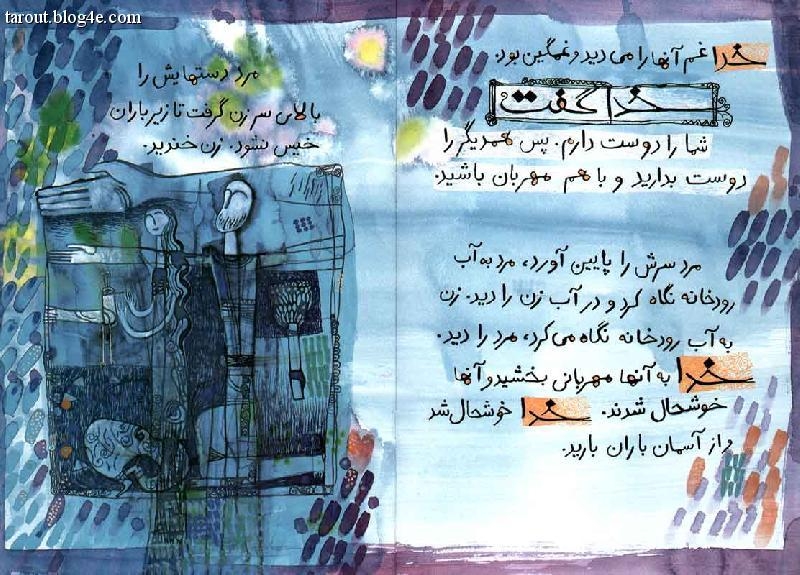 tarout.blog4e.com
خدا غم آنها را می دید و غمگین بود.
خدا گفت
شما را دوست دارم. پس همدیگر را
دوست بدارید و با هم مهربان باشید.
مرد سرش را پایین آورد، مرد به آب
رودخانه نگاه کرد و در آب زن را دید. زن
به آب رودخانه نگاه می کرد، مرد را دید.
خدا به آنها مهربانی بخشید و آنها
خوشحال شدند. خدا خوشحال شد
و از آسمان باران بارید.
مرد دستهایش را
بالای سر زن گرفت تا زیر باران
خیس نشود. زن خندید.